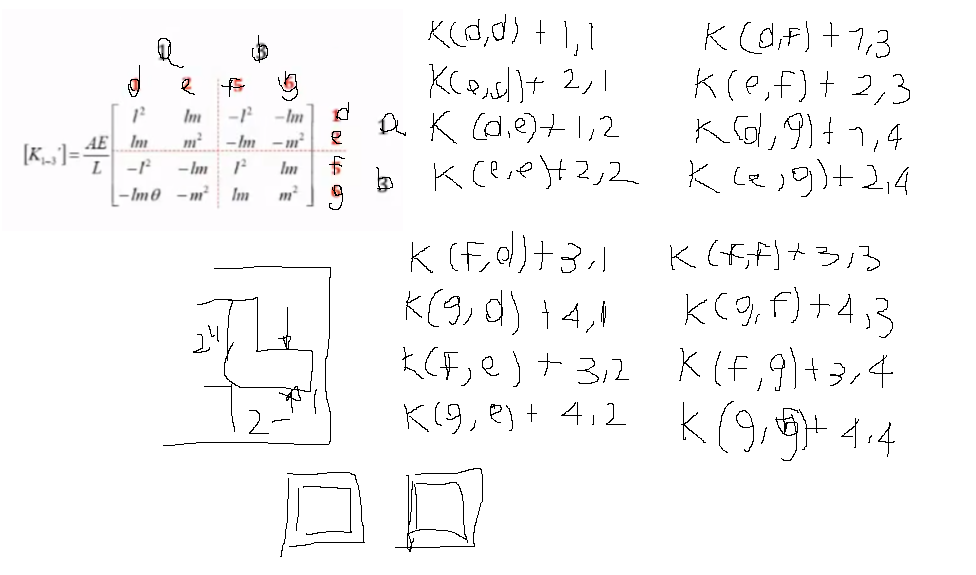 a b
d e f g
[K₁₋₃'] = AE/L
l² lm −l² −lm d
lm m² −lm −m² e a
−l² −lm l² lm f
−lmθ −m² lm m² g b
K(d,d) + 1,1
K(e,d) + 2,1
K (d,e) + 1,2
K (e,e) + 2,2
K (d,f) + 1,3
K (e,f) + 2,3
K (d,g) + 1,4
K (e,g) + 2,4
K (f,d) + 3,1
K(g,d) + 4,1
K(f,e) + 3,2
K(g,e) + 4,2
K (f,f) + 3,3
K(g,f) + 4,3
K (f,g) + 3,4
K (g,g) + 4,4
2"
2